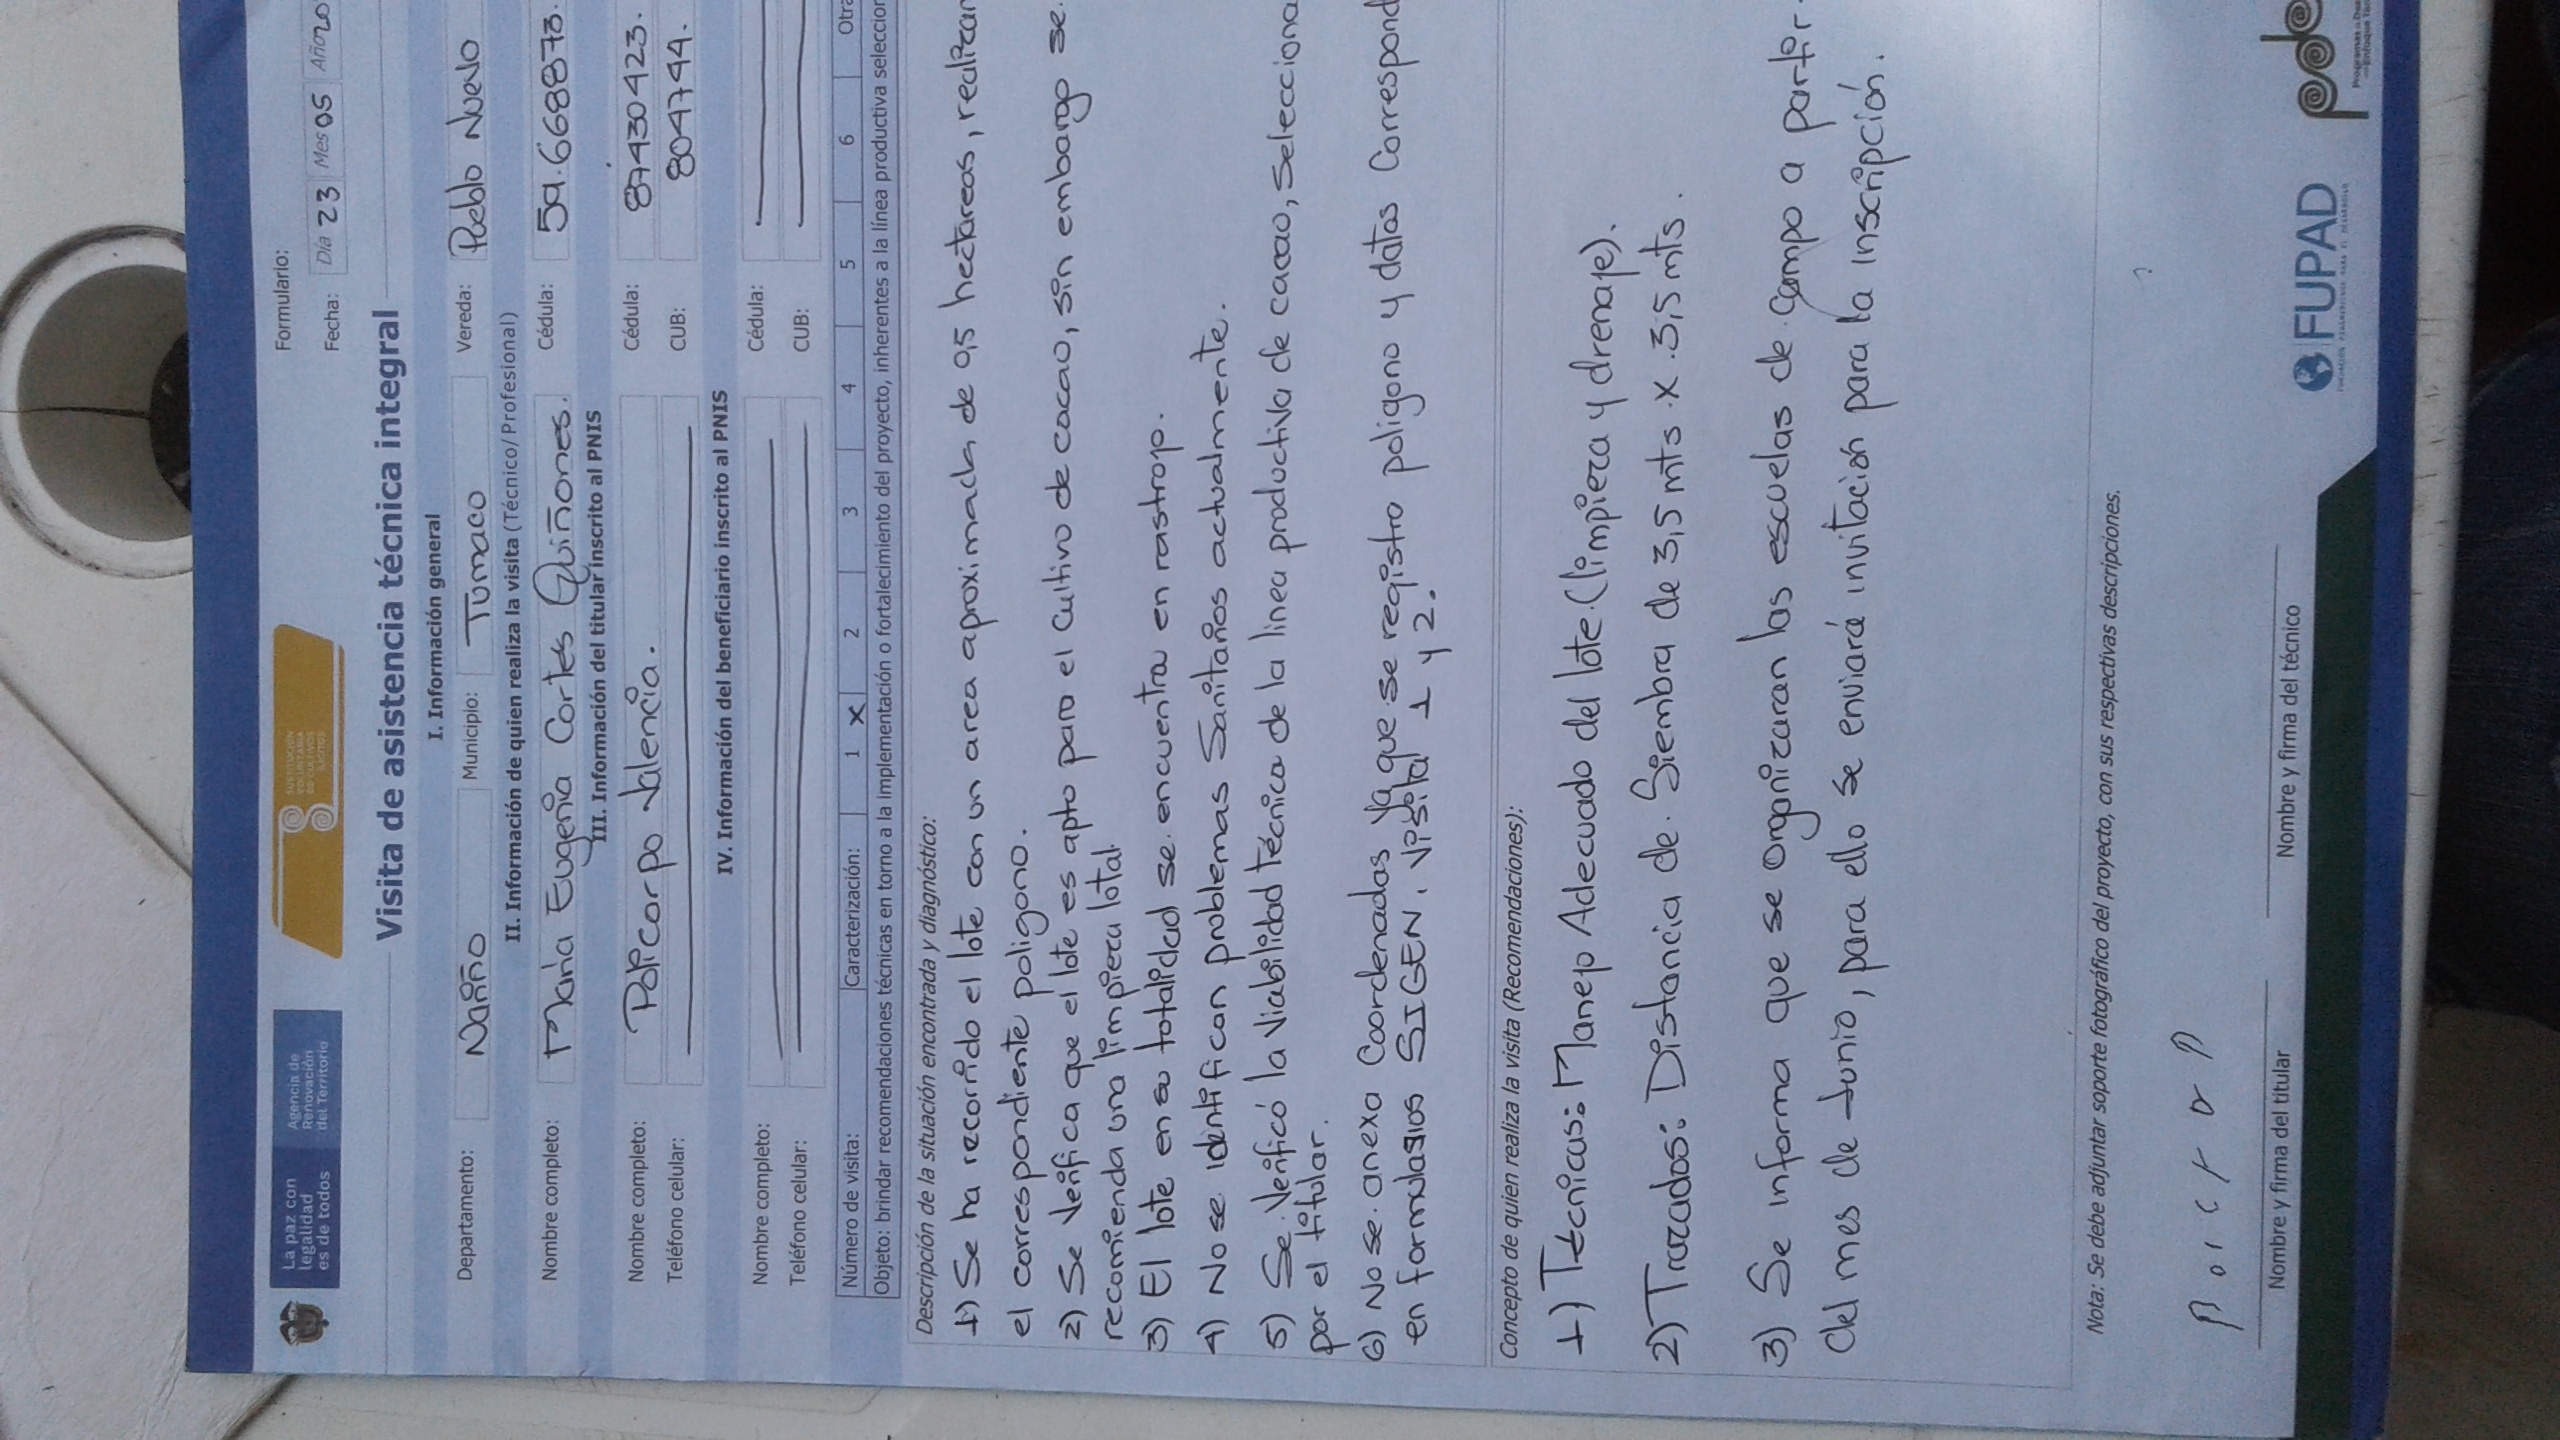 La paz con
legalidad
es de todos
Agencia de
Renovación
del Territorio
SUSTITUCIÓN
VOLUNTARIA
DE CULTIVOS
ILÍCITOS
Formulario:
Fecha: Día 23 Mes 05 Año 20
Visita de asistencia técnica integral
I. Información general
Departamento: Nariño Municipio: Tumaco Vereda: Pueblo Nuevo
II. Información de quien realiza la visita (Técnico/ Profesional)
Nombre completo: Maria Eugenia Cortes Quiñones. Cédula: 59.668873.
III. Información del titular inscrito al PNIS
Nombre completo: Policarpo Valencia. Cédula: 87430423.
Teléfono celular: CUB: 8047744.
IV. Información del beneficiario inscrito al PNIS
Nombre completo: Cédula:
Teléfono celular: CUB:
Número de visita: Caracterización: 1 X 2 3 4 5 6 Otra
Objeto: brindar recomendaciones técnicas en torno a la implementación o fortalecimiento del proyecto, inherentes a la línea productiva seleccion
Descripción de la situación encontrada y diagnóstico:
1) Se ha recorrido el lote con un area aproximada de 0,5 hectareas, realizan
el correspondiente poligono.
2) Se Verifica que el lote es apto para el cultivo de cacao, sin embargo se.
recomienda una limpieza total.
3) El lote en su totalidad se encuentra en rastrojo.
4) No se identifican problemas Sanitarios actualmente.
5) Se Verificó la Viabilidad técnica de la linea productiva de cacao, selecciona
por el titular.
6) No se anexa Coordenadas ya que se registro poligono y datos correspond
en formularios SIGEN, visita 1 y 2.
Concepto de quien realiza la visita (Recomendaciones):
1) Tecnicas: Manejo Adecuado del lote (limpieza y drenaje).
2) Trazados: Distancia de Siembra de 3,5 mts x 3,5 mts.
3) Se informa que se organizaran las escuelas de campo a partir
del mes de Junio, para ello se enviará invitación para la inscripción.
Nota: Se debe adjuntar soporte fotográfico del proyecto, con sus respectivas descripciones.
Nombre y firma del titular
Nombre y firma del técnico
FUPAD
FUNDACIÓN PANAMERICANA PARA EL DESARROLLO